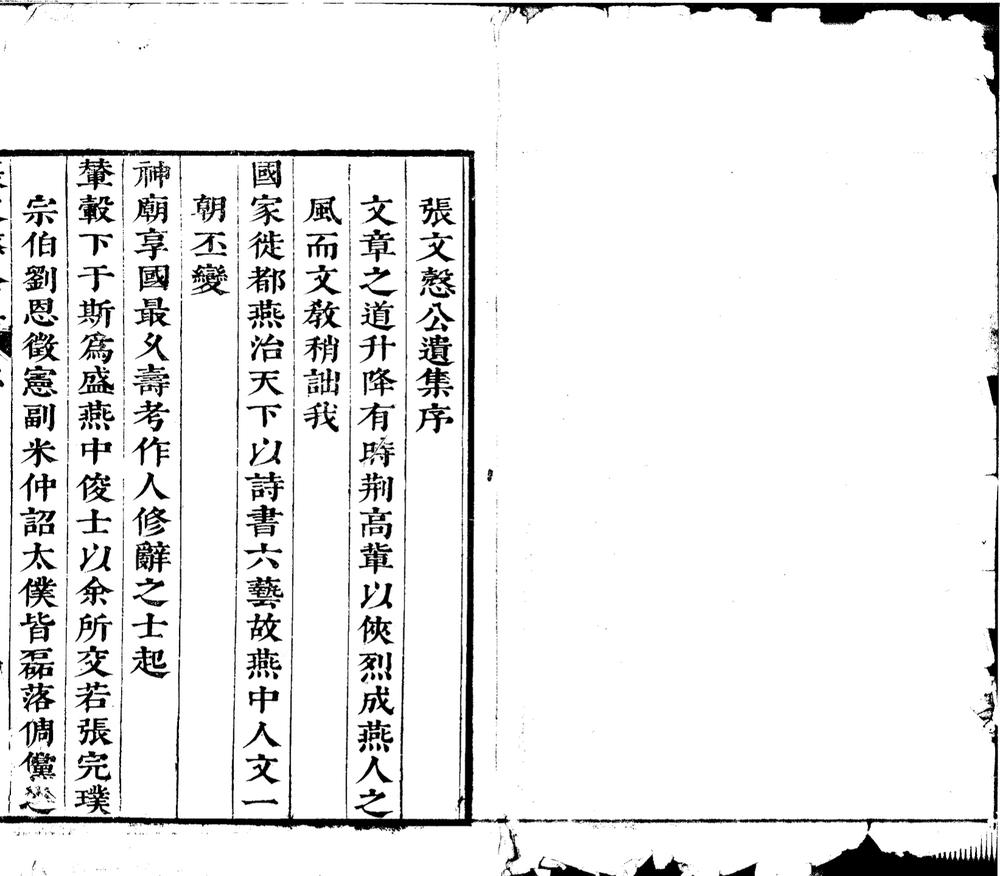 張文慤公遺集序
文章之道升降有時荆高軰以俠烈成燕人之
風而文教稍詘我
國家徙都燕治天下以詩書六藝故燕中人文一
朝丕變
神廟享國最久壽考作人修辭之士起
輦轂下于斯爲盛燕中俊士以余所交若張完璞
宗伯劉恩徵憲副米仲詔太僕皆磊落倜儻